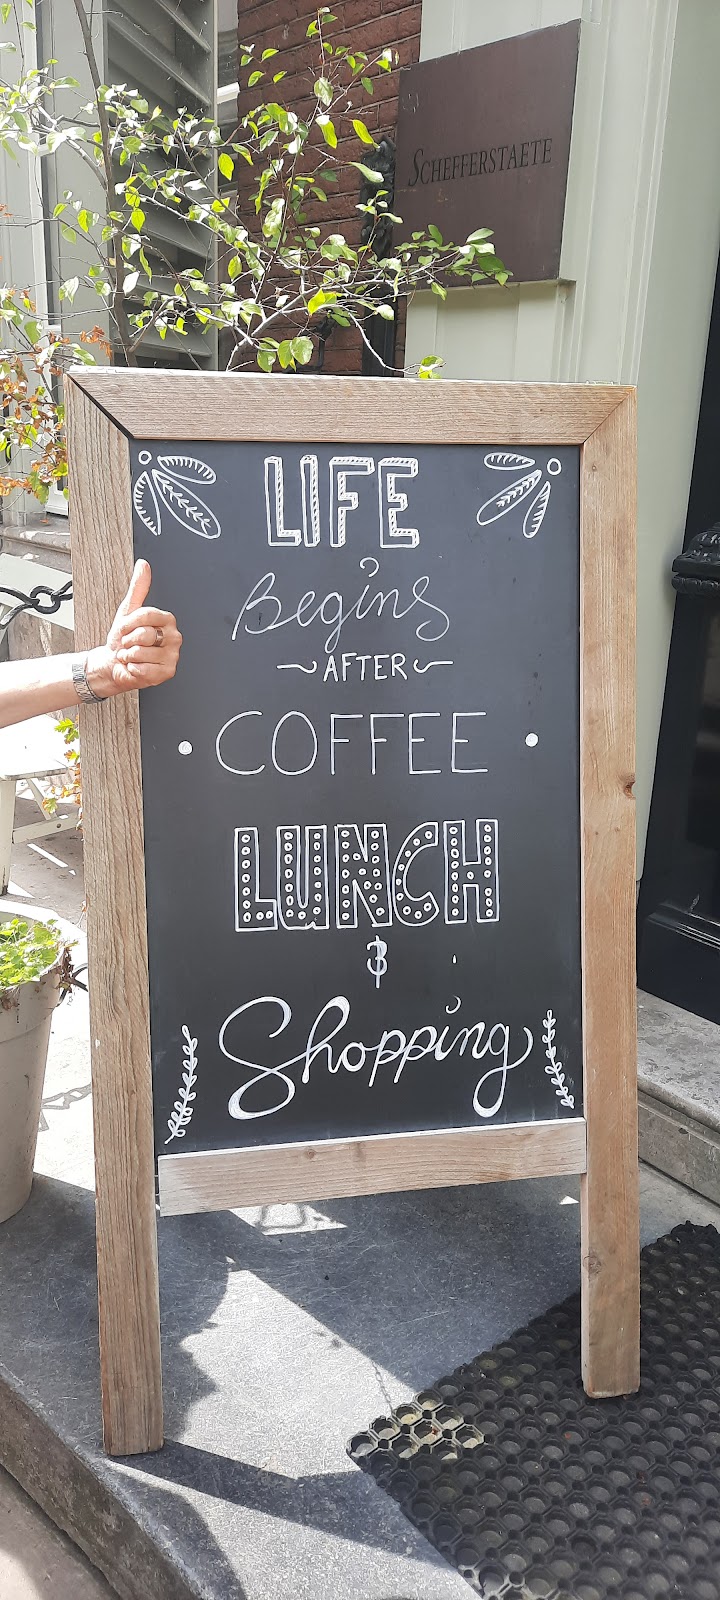 SCHEFFERSTAETE
LIFE
Begins
AFTER
COFFEE
LUNCH
&
Shopping